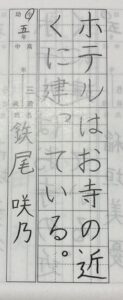 ホテルはお寺の近
くに建っている。
五年
鉄尾 咲乃